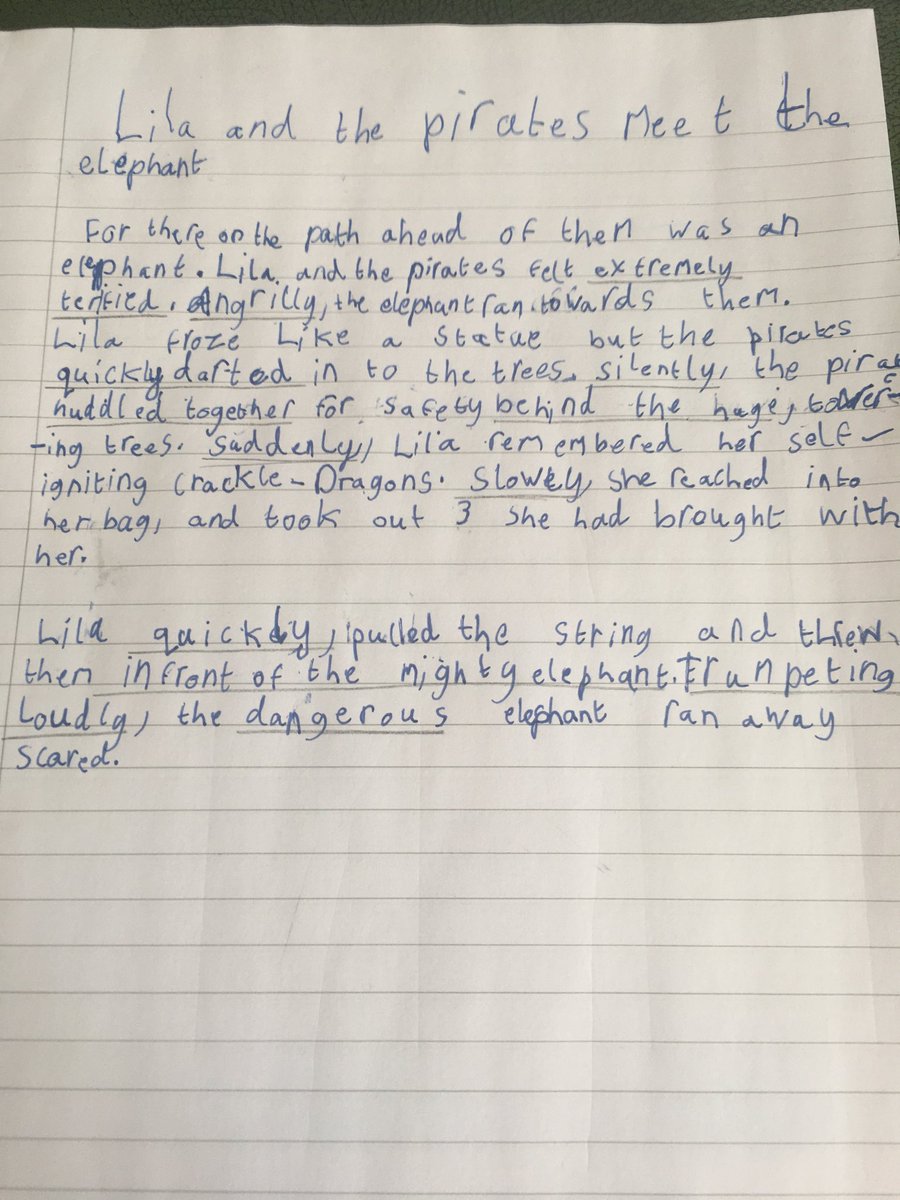 Lila and the pirates Meet the
elephant
For there on the path ahead of them was an
elephant. Lila and the pirates felt extremely
terified. Angrilly, the elephant ran towards them.
Lila froze Like a statue but the pirates
quickly darted in to the trees. silently, the pirat
huddled together for safety behind the huge, tower-
-ing trees. Suddenly, Lila remembered her self-
igniting Crackle-Dragons. Slowly, she reached into
her bag, and took out 3 she had brought with
her.
Lila quickly, pulled the string and threw
them infront of the mighty elephant. Trumpeting
Loudly, the dangerous elephant ran away
scared.